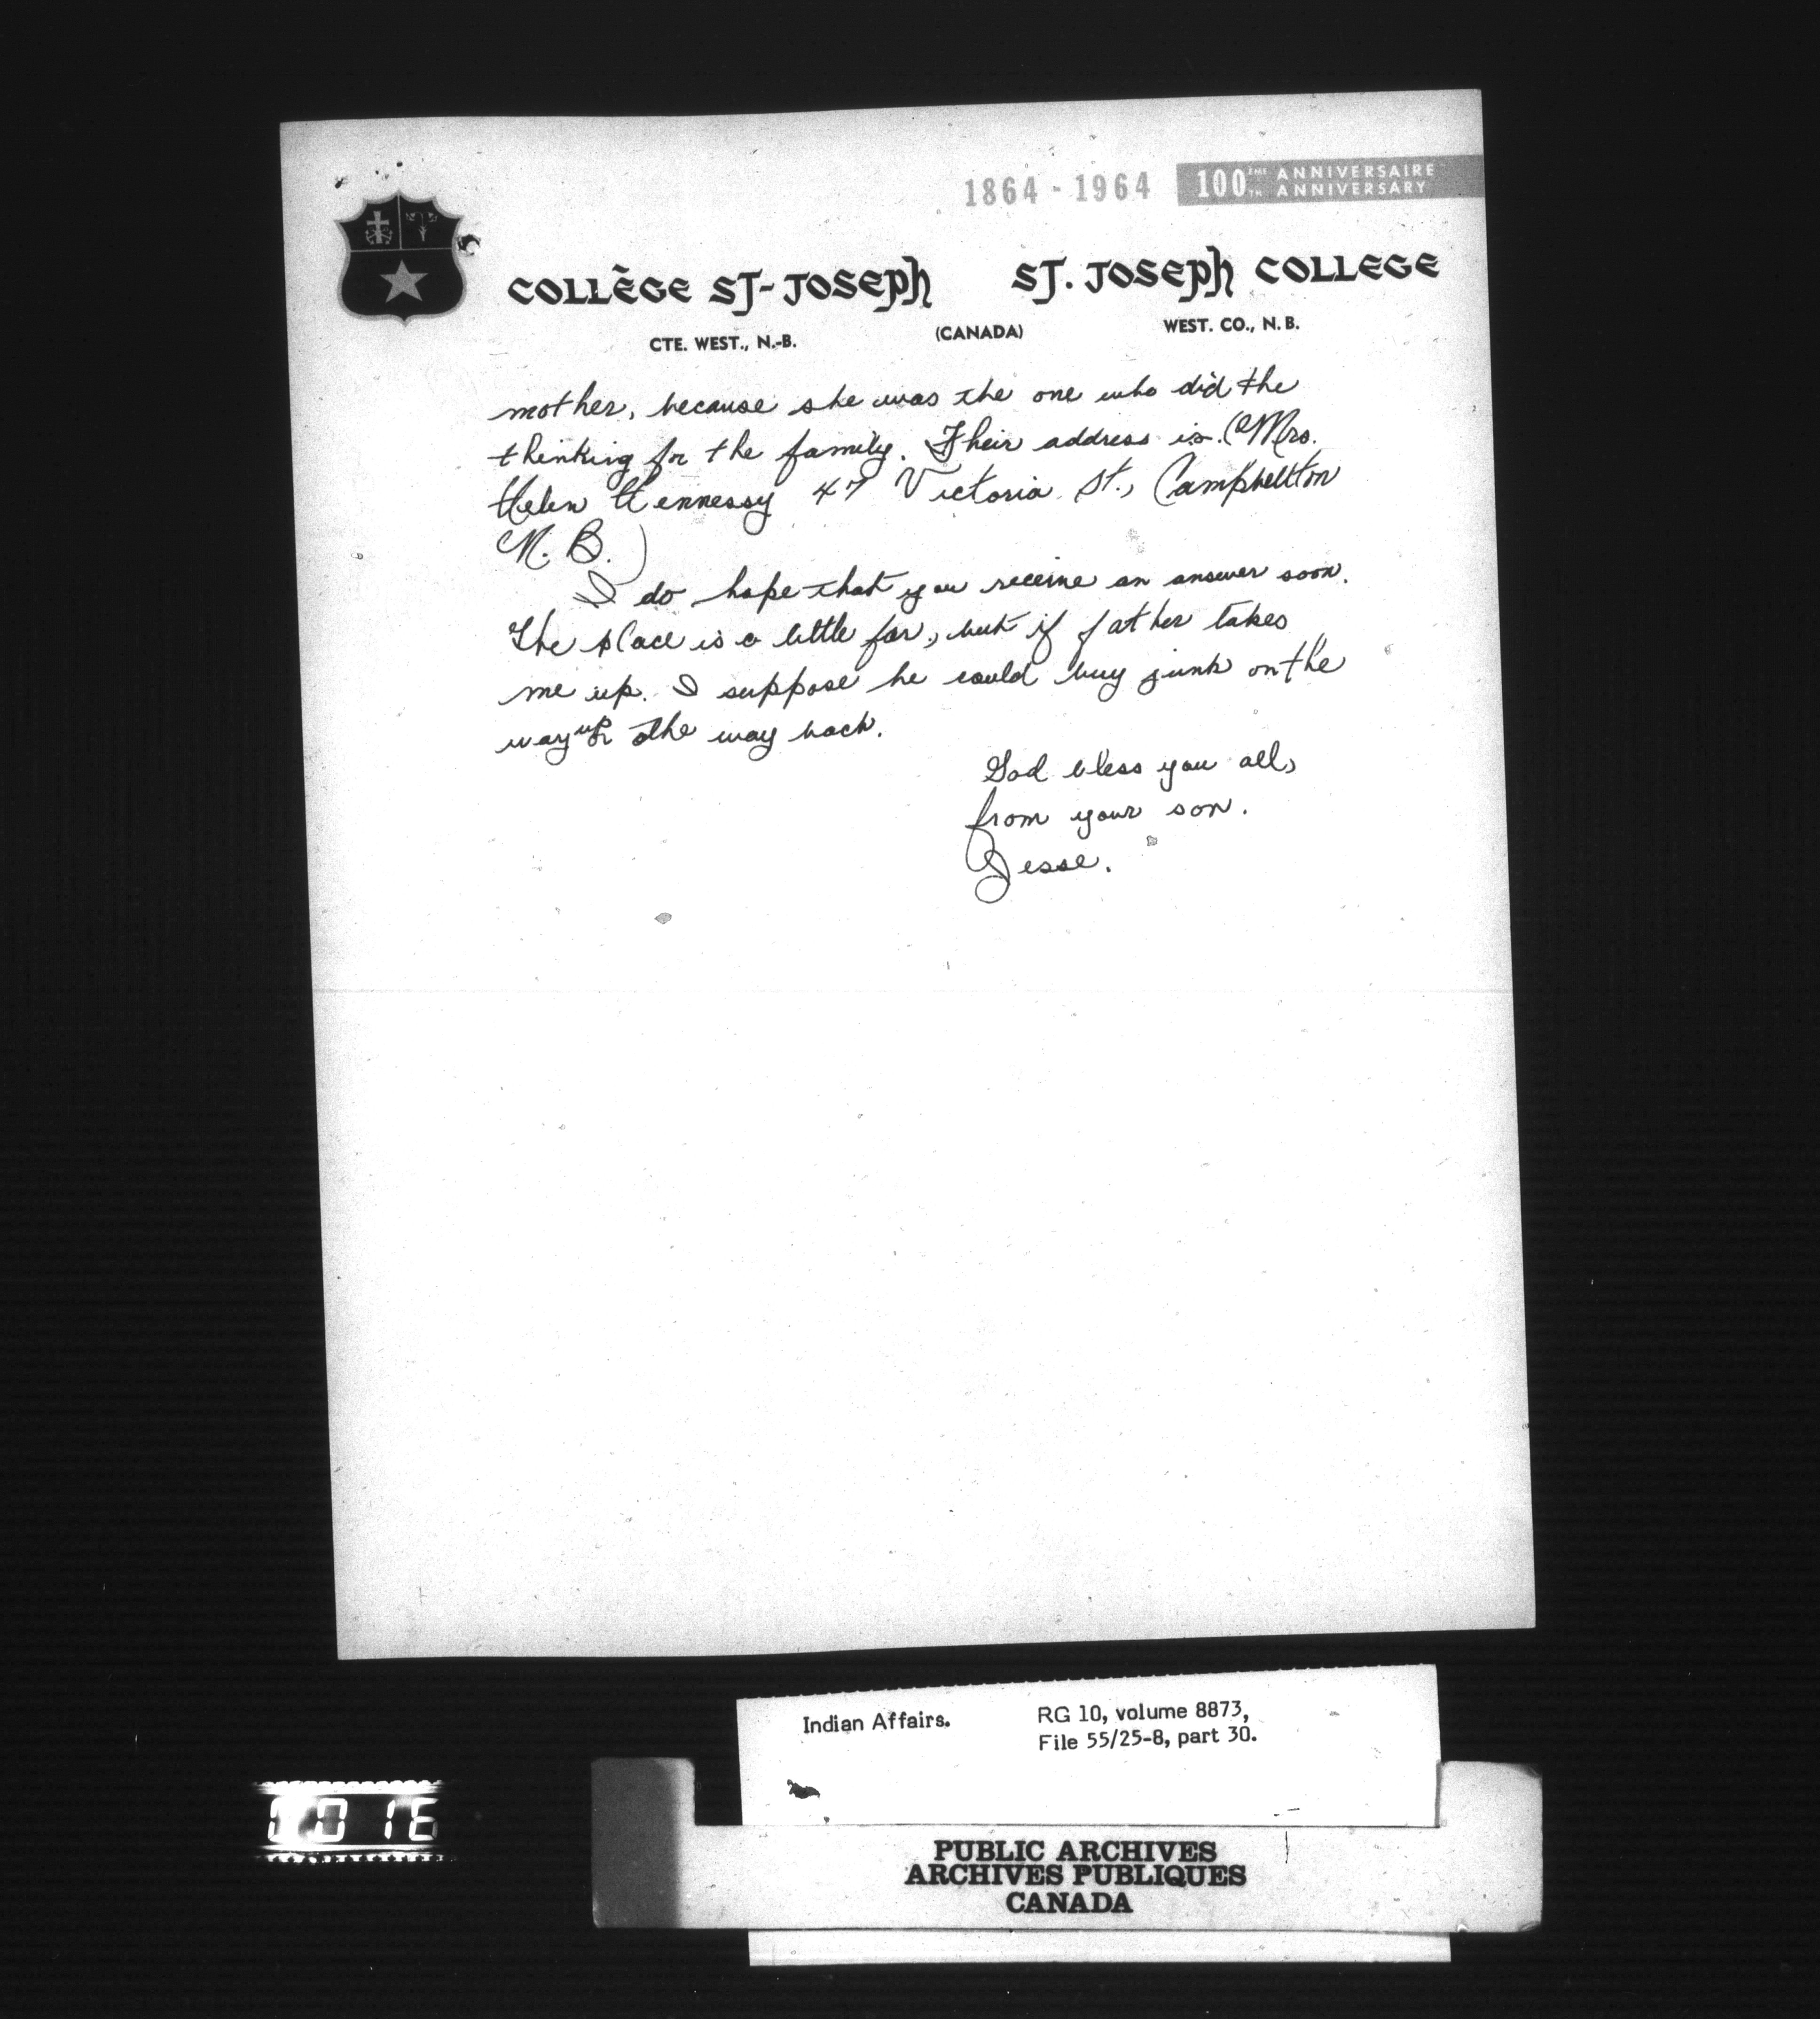 1864 - 1964 100 IÈME TH ANNIVERSAIRE ANNIVERSARY
COLLÈGE ST-JOSEPH ST. JOSEPH COLLEGE
CTE. WEST., N.-B. (CANADA) WEST. CO., N. B.
mother, because she was the one who did the
thinking for the family. Their address is. (Mrs.
Helen Hennessy 47 Victoria St., Campbellton
N. B.)
I do hope that you receive an answer soon.
The place is a little far, but if father takes
me up. I suppose he could buy junk on the
way up or the way back.
God bless you all,
from your son.
Jesse.
Indian Affairs. RG 10, volume 8873,
File 55/25-8, part 30.
0016
PUBLIC ARCHIVES
ARCHIVES PUBLIQUES
CANADA